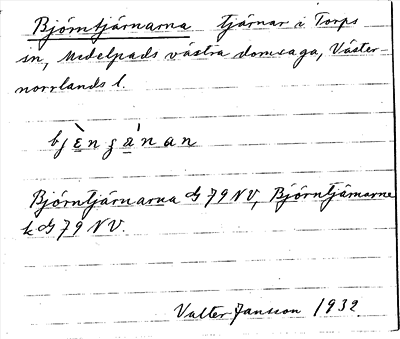 Björntjärnarna tjärnar i Torps
sn, Medelpads västra domsaga, Väster-
norrlands l.
bjὲnʒánan
Björntjärnarna G 79 NV, Björntjärnarne
k G 79 NV.
Valter Jansson 1932